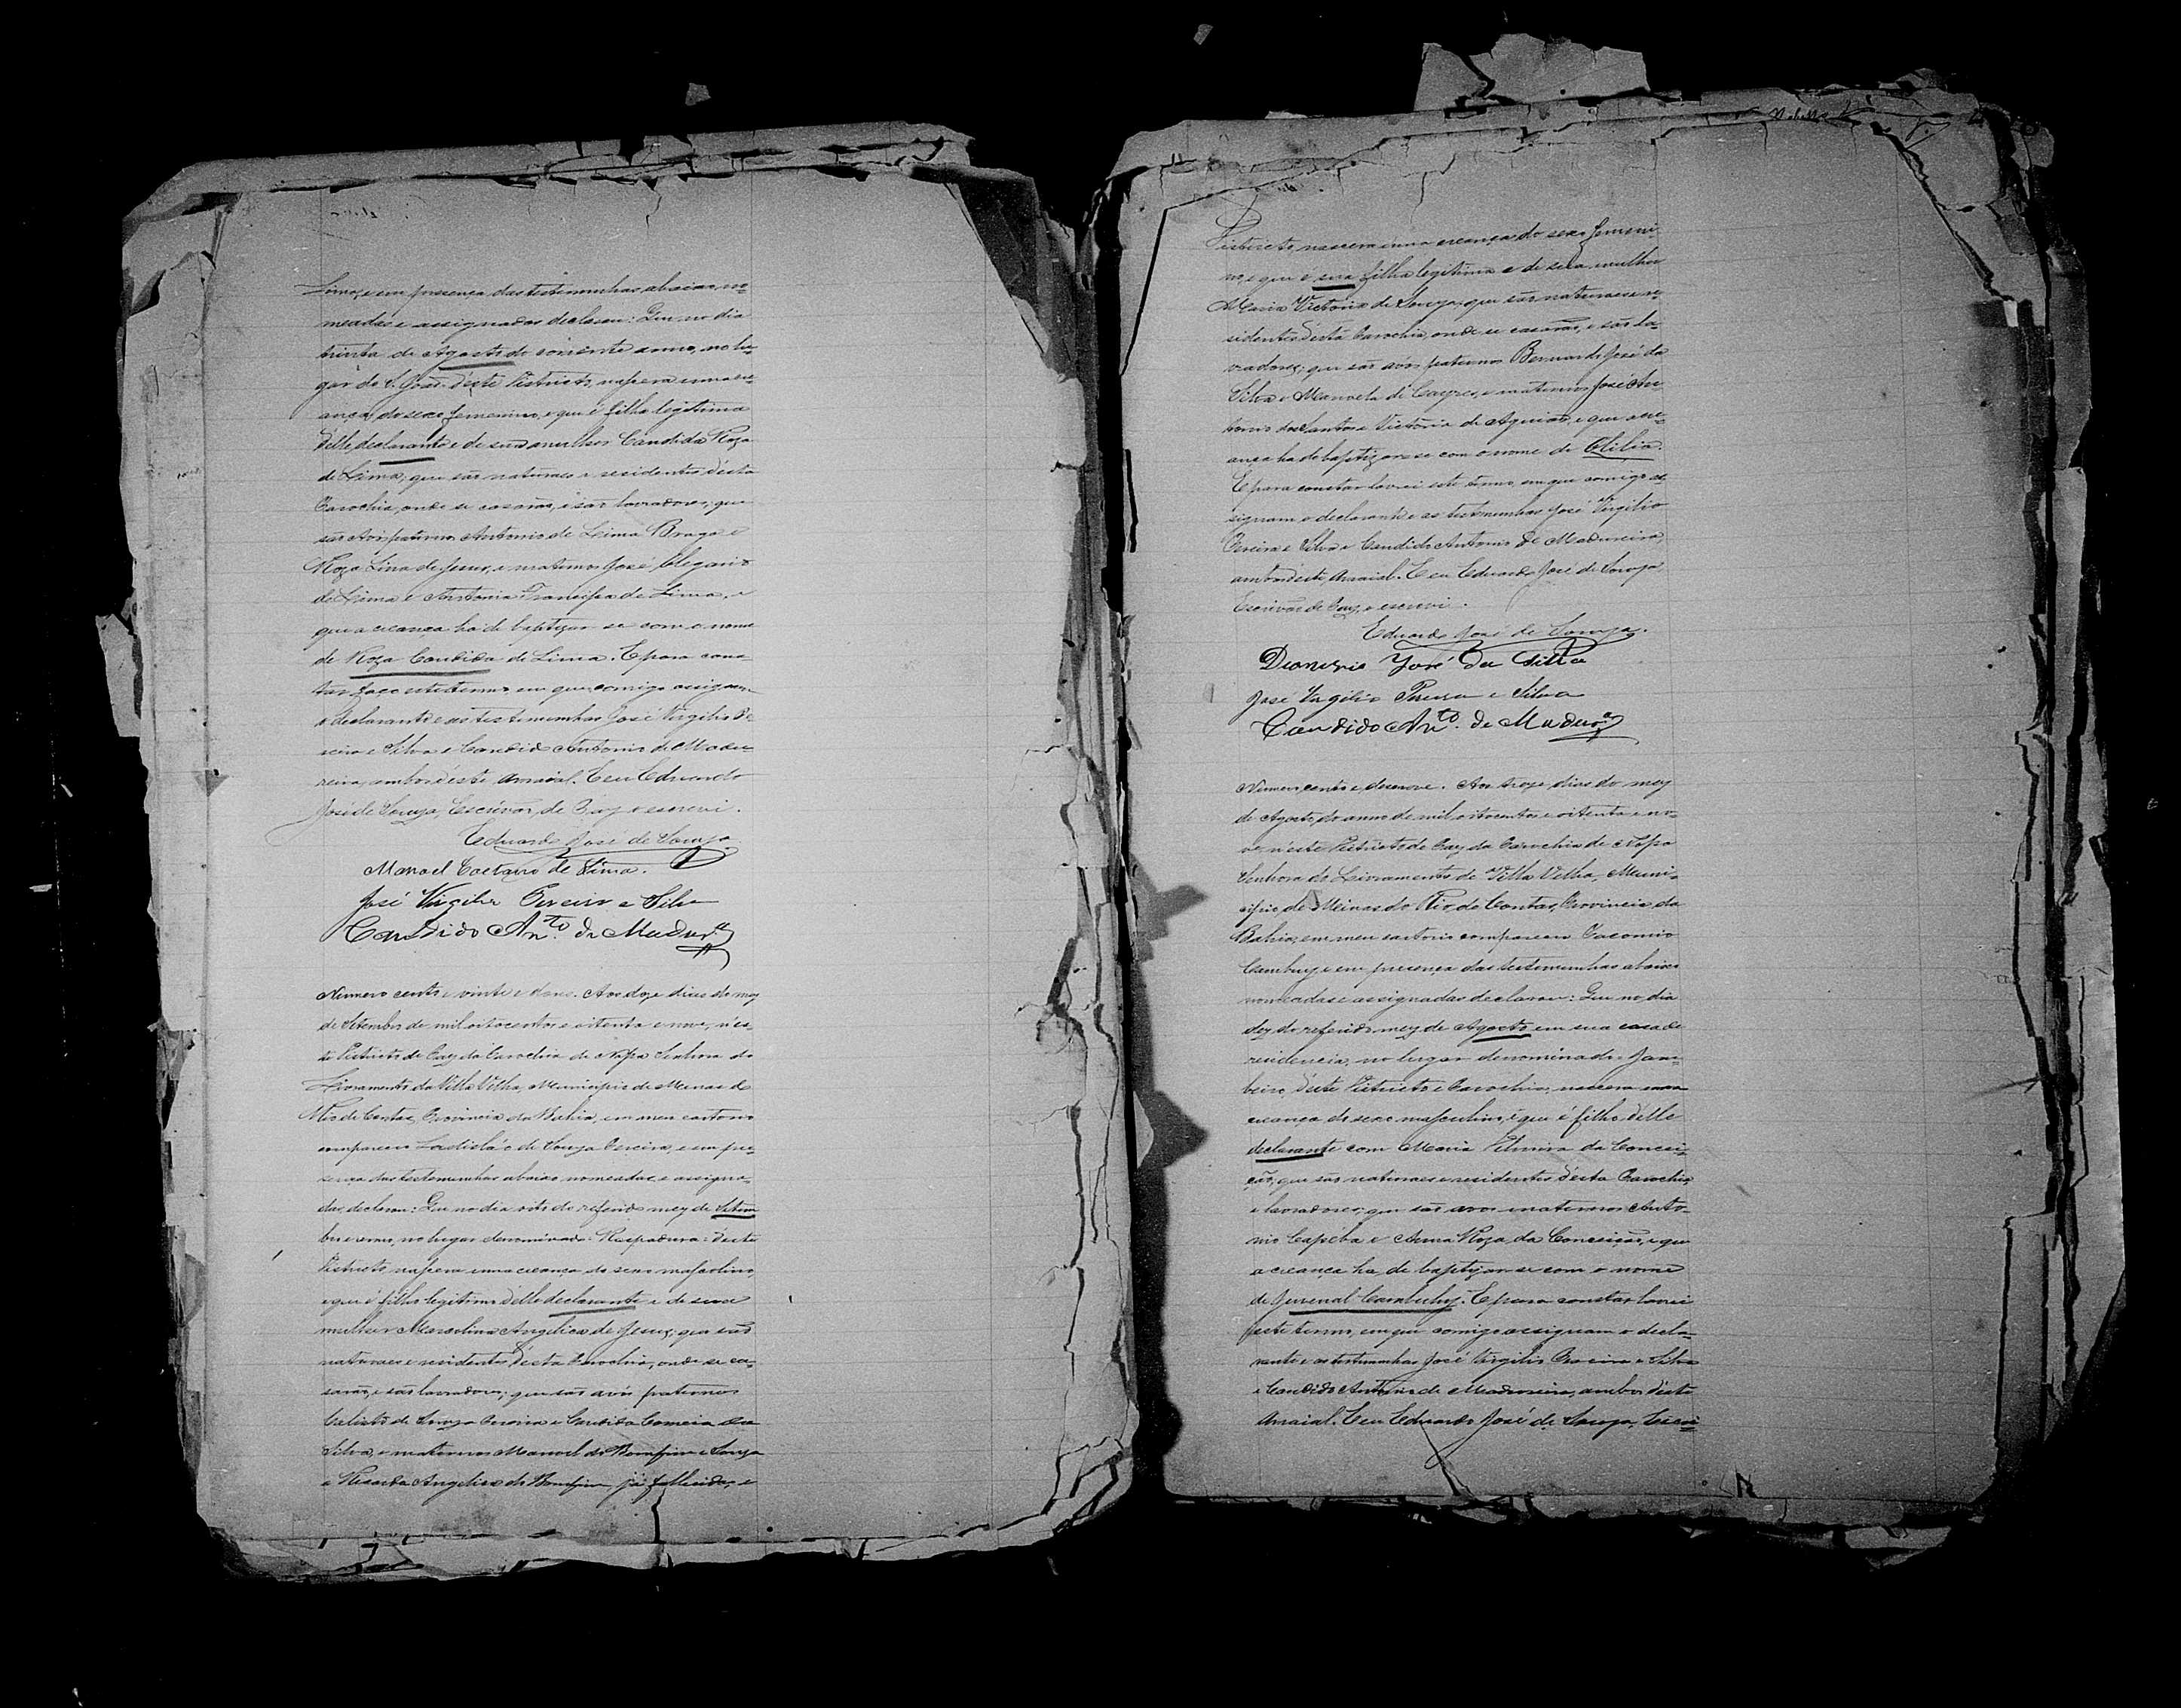 Lima, e em presença das testemunhas abaixo no-
meadas e assignadas declarou: Que no dia
trinta de Agosto do corrente anno, no lu-
gar de S. José d'este Districto, nasceu uma cre-
ança do sexo femenino, e que é filha legitima
d'elle declarante e de sua mulher Candida Roza
de Lima, que são naturaes e residentes d'esta
Parochia, onde se casarão, e são lavradores; que
são Avós paternos Antonio de Lima Braga e
Roza Lina de Jesus, e maternos José Olegario
de Lima e Antonia Francisca de Lima, e
que a creança ha de baptizar-se com o nome
de Roza Candida de Lima. E para cons-
tar faço este termo, em que comigo assignam
o declarante e as testemunhas José Virgilio Pe-
reira e Silva e Candido Antonio de Madu-
reira, ambos d'este Arraial. E eu Eduardo
José de Souza, Escrivão de Paz, o escrevi.
Eduardo José de Souza
Manoel Caetano de Lima.
José Virgilio Pereira e Silva
Candido Anto. de Madura.
Numero cento e vinte e dous. Aos doze dias do mez
de Setembro de mil oitocentos e oitenta e nove, n'es-
te Districto de Paz da Parochia de Nossa Senhora do
Livramento da Villa Velha, Municipio de Minas do
Rio de Contas, Provincia da Bahia, em meu cartorio
compareceu Ladisláo de Souza Pereira, e em pre-
sença das testemunhas abaixo nomeadas e assigna-
das, declarou: Que no dia oito do referido mez de Setem
bro e anno, no lugar denominado Rapadura d'este
Districto nasceu uma creança do sexo masculino,
e que é filho legitimo d'elle declarante e de sua
mulher Marcolina Angelica de Jesus, que são
naturaes e residentes d'esta Parochia, onde se ca-
sarão, e são lavradores; que são avós paternos
Calisto de Souza Pereira e Candida Correia da
Silva, e maternos Manoel do Bomfim e Souza
e Angelica do Bomfim já fallecida, e
Districto, nascera uma creança do sexo femini-
no, e que é sua filha legitima e de sua mulher
Maria Victoria de Souza, que são naturaes e re-
sidentes d'esta Parochia, onde se casarão, e são la-
vradores; que são avós paternos Bernardo José da
Silva e Manoela de e maternos José An-
tonio dos Santos e Victoria de Aguiar, e que a cre-
ança ha de baptizar-se com o nome de Otilia.
E para constar lavrei este termo, em que comigo as-
signam o declarante e as testemunhas José Virgilio
Pereira e Silva e Candido Antonio de Madureira,
ambos d'este Arraial. E eu Eduardo José de Souza,
Escrivão de Paz, o escrevi.
Eduardo José de Souza.
Dionizio José da Silva
José Virgilio Pereira e Silva
Candido Anto. de Madura.
Numero cento e desenove. Aos treze dias do mez
de Agosto do anno de mil oitocentos e oitenta e no-
ve, n'este Districto de Paz da Parochia de Nossa
Senhora do Livramento de Villa Velha, Muni-
cipio de Minas do Rio de Contas, Provincia da
Bahia, em meu cartorio compareceu
Cambuy, e em presença das testemunhas abaixo
nomeadas e assignadas declarou: Que no dia
dez do referido mez de Agosto em sua casa de
residencia, no lugar denominado Jam-
beiro, d'este Districto e Parochia, nascera uma
creança do sexo masculino, e que é filho d'elle
declarante com Maria da Concei-
ção, que são naturaes e residentes d'esta Parochia,
e lavradores; que são avós maternos Anto-
nio Capéba e Anna Roza da Conceição, e que
a creança ha de baptizar-se com o nome
de Juvenal Cambuhy. E para constar lavrei
este termo, em que comigo assignam o decla-
rante e as testemunhas José Virgilio Pereira e Silva
e Candido Antonio de Madureira, ambos d'este
Arraial. E eu Eduardo José de Souza, Escri-